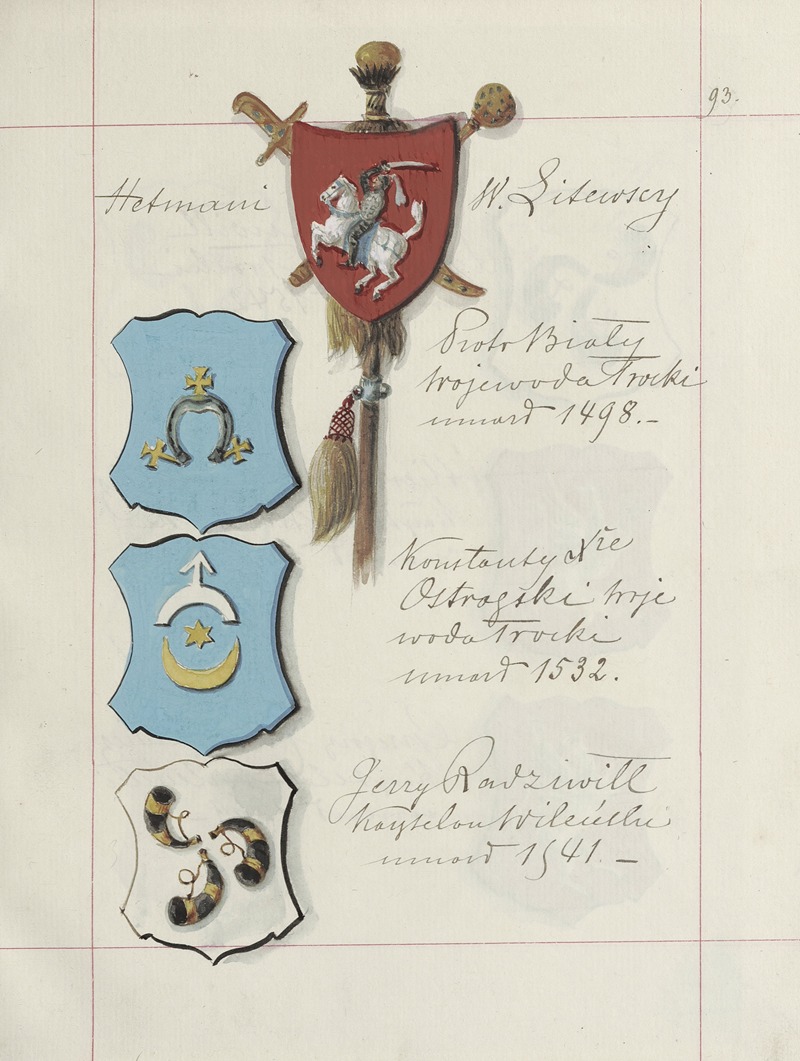 93.
Hetmani W. Litewscy
Piotr Biały
wojewoda Trocki
umarł 1498.-
Konstanty Xże
Ostrogski woje
woda Trocki
umarł 1532.
Jerzy Radziwiłł
Kasztelan Wileński
umarł 1541. -